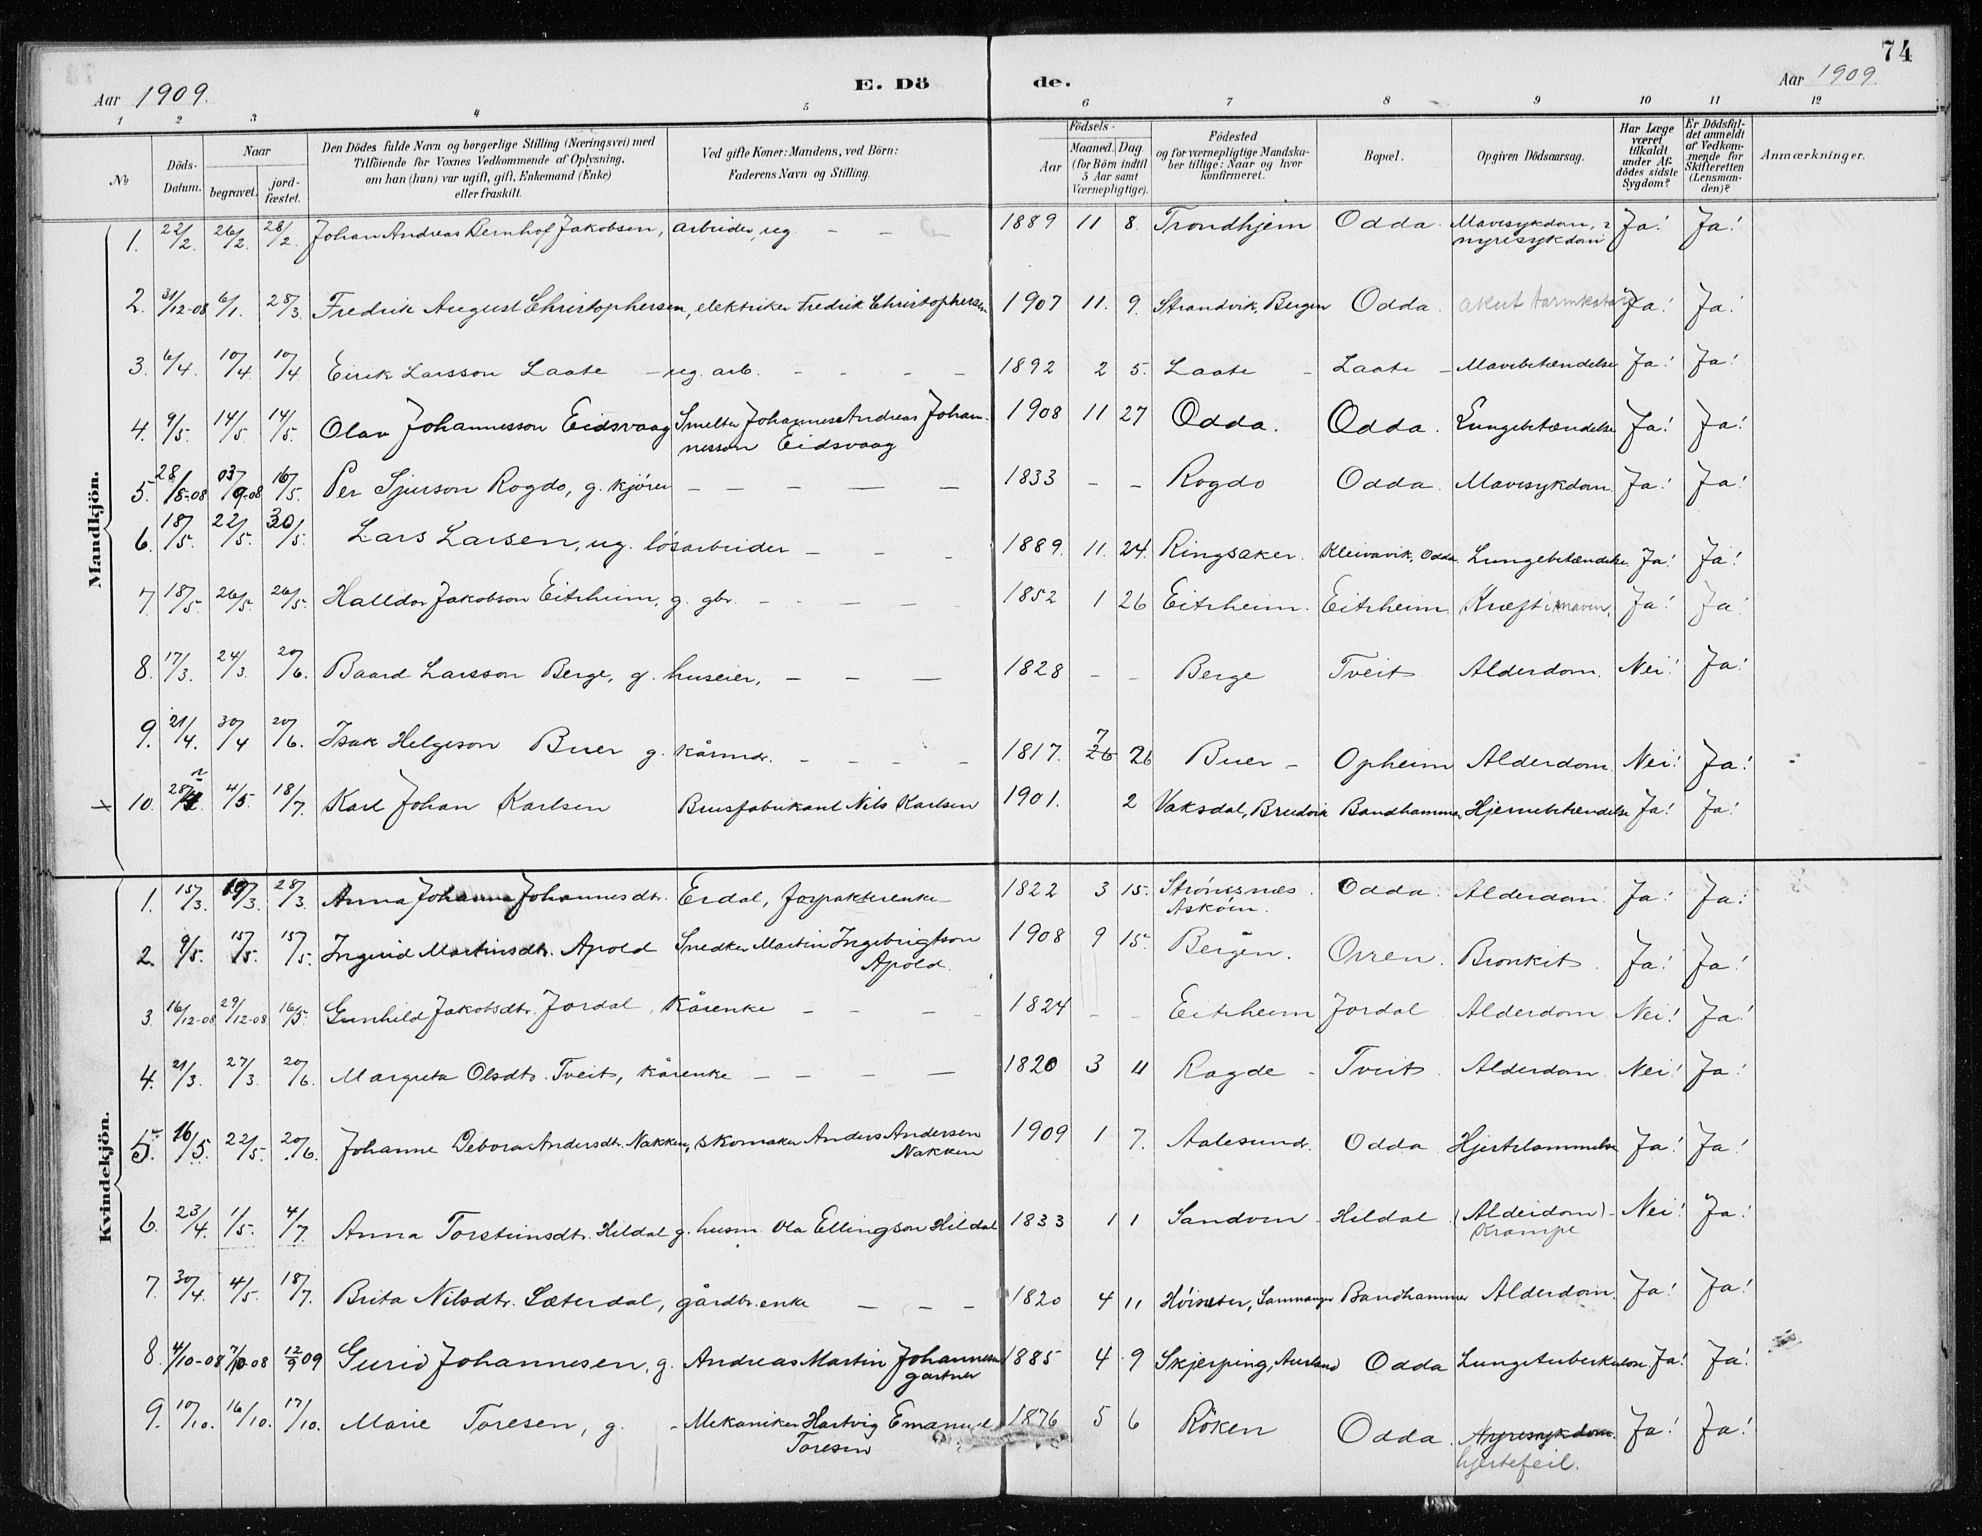 74
Aar 1909. E. Dö de. Aar 1909.
1 2 3 4 5 6 7 8 9 10 11 12
No
Döds-Datum.
Naar
begravet.
jord-fæstet.
Den Dödes fulde Navn og borgerlige Stilling (Næringsvei) med
Tilföiende for Voxnes Vedkommende af Oplysning,
om han (hun) var ugift, gift, Enkemand (Enke)
eller fraskilt.
Ved gifte Koner: Mandens, ved Börn:
Faderens Navn og Stilling.
Födsels-
Aar
Maaned. Dag.
(for Börn indtil
5 Aar samt
Værnepligtige).
Födested
og for værnepligtige Mandska-
ber tillige: Naar og hvor
konfirmeret.
Bopæl.
Opgiven Dödsaarsag.
Har Læge
været
tilkaldt
under Af-
dödes sidste
Sygdom?
Er Dödsfal-
det anmeldt
af Vedkom-
mende for
Skifteretten
(Lensman-
den)?
Anmærkninger.
Mandkjön.
1. 22/2. 26/2. 28/2. Johan Andreas Bernhof Jakobsen, arbeider, ug. – – 1889 11 8. Trondhjem Odda. Mavesykdom,
nyresykdom Ja! Ja!
2. 31/12-08 6/1. 28/3. Fredrik August Christophersen, elektriker Fredrik Christophersen 1907 11. 9. Strandvik, Bergen Odda. akut tarmkatarr Ja! Ja!
3. 6/4. 10/4 10/4 Eirik Larsson Laate – ug. arb. – – – – 1892 2 5. Laate – Laate – Mavebetændelse Ja! Ja!
4. 9/5. 14/5 14/5. Olav Johannesson Eidsvaag Smelter Johannes Andreas Johan-
nesson Eidsvaag 1908 11 27 Odda. Odda. Lungebetændelse Ja! Ja!
5. 28/8-08 03/9-08 16/5. Per Sjurson Rogdo, g. kjörer – – – – – 1833 – – Rogdo Odda. Mavesykdom. Ja! Ja!
6. 18/5. 22/5. 30/5. Lars Larsen, ug. lösarbeider – – – 1889. 11. 24. Ringsaker. Kleivavik, Odda. Lungebetændelse. Ja! Ja!
7 18/5. 26/5. 26/5. Halldor Jakobson Eitrheim, g. gbr. – – – – 1852 1 26 Eitrheim. Eitrheim Kræft i maven, Ja! Ja!
8. 17/3. 24/3. 20/6. Baard Larsson Berge, g. huseier, – – – 1828 – – Berge Tveit Alderdom. Nei! Ja!
9. 21/4. 30/4 20/6. Isak Helgeson Buer g. kårmdr. – – – – 1817. 7 26 26 Buer – Opheim Alderdom. Nei! Ja!
x 10. 28/4. 4/5. 18/7. Karl Johan Karlsen Brusfabrikant Nils Karlsen 1901. 2 Vaksdal, Brudvik Bandhammer, Hjernebetændelse Ja! Ja!
Kvindekjön.
1. 15/3. 19/3. 28/3. Anna Johanna Johannesdtr. Erdal, forpakterenke 1822 3 15. Strömsnæs.
Asköen. Odda. Alderdom. Ja! Ja!
2. 9/5. 15/5. 15/5. Ingerid Martinsdtr. Apold Snedker Martin Ingebrigtson
Apold. 1908 9 15. Bergen. Orren. Bronkit. Ja! Ja!
3. 16/12-08 29/12-08. 16/5. Gunhild Jakobsdtr. Jordal, kårenke – – – – 1824 – – Eitrheim Jordal Alderdom Nei! Ja!
4. 21/3. 27/3. 20/6. Margreta Olsdtr. Tveit, kårenke – – – – 1820 3 11 Ragde – Tveit. Alderdom. Nei! Ja!
5. 16/5. 22/5. 20/6. Johanne Debora Andersdtr. Nakken, skomaker Anders Andersen
Nakken 1909 1 7. Aalesund. Odda. Hjertelammelse Ja! Ja!
6. 23/4. 1/5. 4/7. Anna Torsteinsdtr. Hildal g. husm. Ola Ellingson Hildal 1833 1 1 Sandven – Hildal (Alderdom) –
Krampe Nei! Ja!
7. 30/4. 4/5. 18/7. Brita Nilsdtr. Sæterdal, gårdbr.enke – – – 1820 4 11 Höisæter, Samnanger Bandhammer Alderdom. Ja! Ja!
8. 4/10-08 7/10-08 12/9 09 Gurid Johannesen, g. Andreas Martin Johannesen
gartner 1885 4 9 Skjerping, Aurland Odda Lungetuberkulose. Ja! Ja!
9. 10/10. 16/10. 17/10. Marie Toresen, g. – Mekaniker Hartvig Emanuel
Toresen 1876 5 6 Röken Odda. Nyresykdom.
hjertefeil. Ja! Ja!